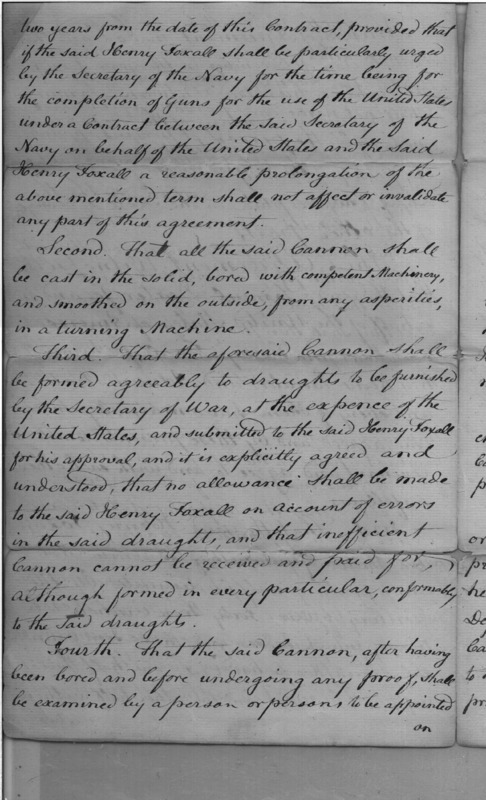 two years from the date of this Contract, provided that
if the said Henry Foxall shall be particularly urged
by the Secretary of the Navy for the time being for
the completion of Guns for the use of the United States
under a Contract between the said Secretary of the
Navy on behalf of the United States and the Said
Henry Foxall a reasonable prolongation of the
above mentioned term shall not affect or invalidate
any part of this agreement.
Second. That all the said Cannon shall
be cast in the solid, bored with competent Machinery,
and smoothed on the outside, from any asperities,
in a turning Machine.
Third. That the aforesaid Cannon shall
be formed agreeably to draughts to be furnished
by the Secretary of War, at the expence of the
United States, and submitted to the said Henry Foxall
for his approval, and it is explicitly agreed and
understood, that no allowance shall be made
to the said Henry Foxall on account of errors
in the said draughts, and that inefficient
Cannon cannot be received and paid for,
although formed in every particular, conformably
to the said draughts.
Fourth. That the said Cannon, after having
been bored and before undergoing any proof, shall
be examined by a person or persons to be appointed
on